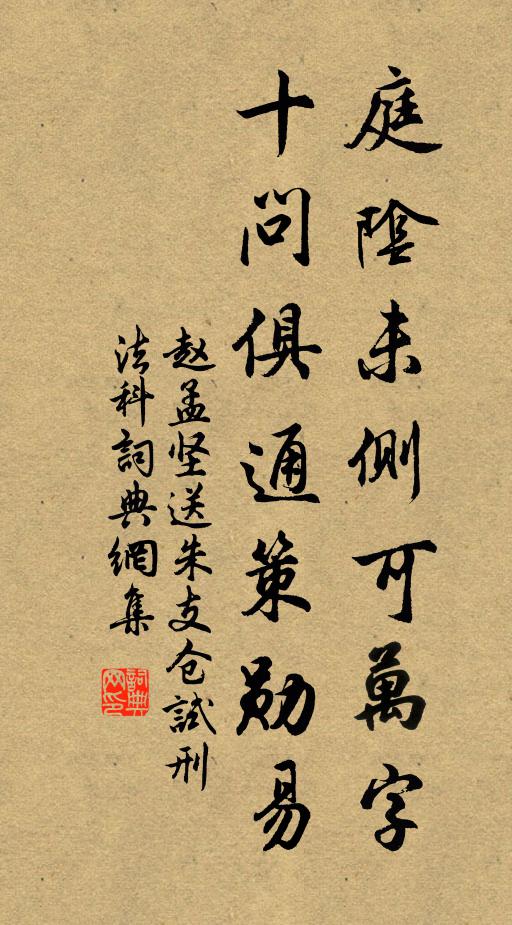 庭陰未側可萬字
十問俱通策勋易
赵孟坚送朱支仓試刑
法科詞典網集
詞典网印